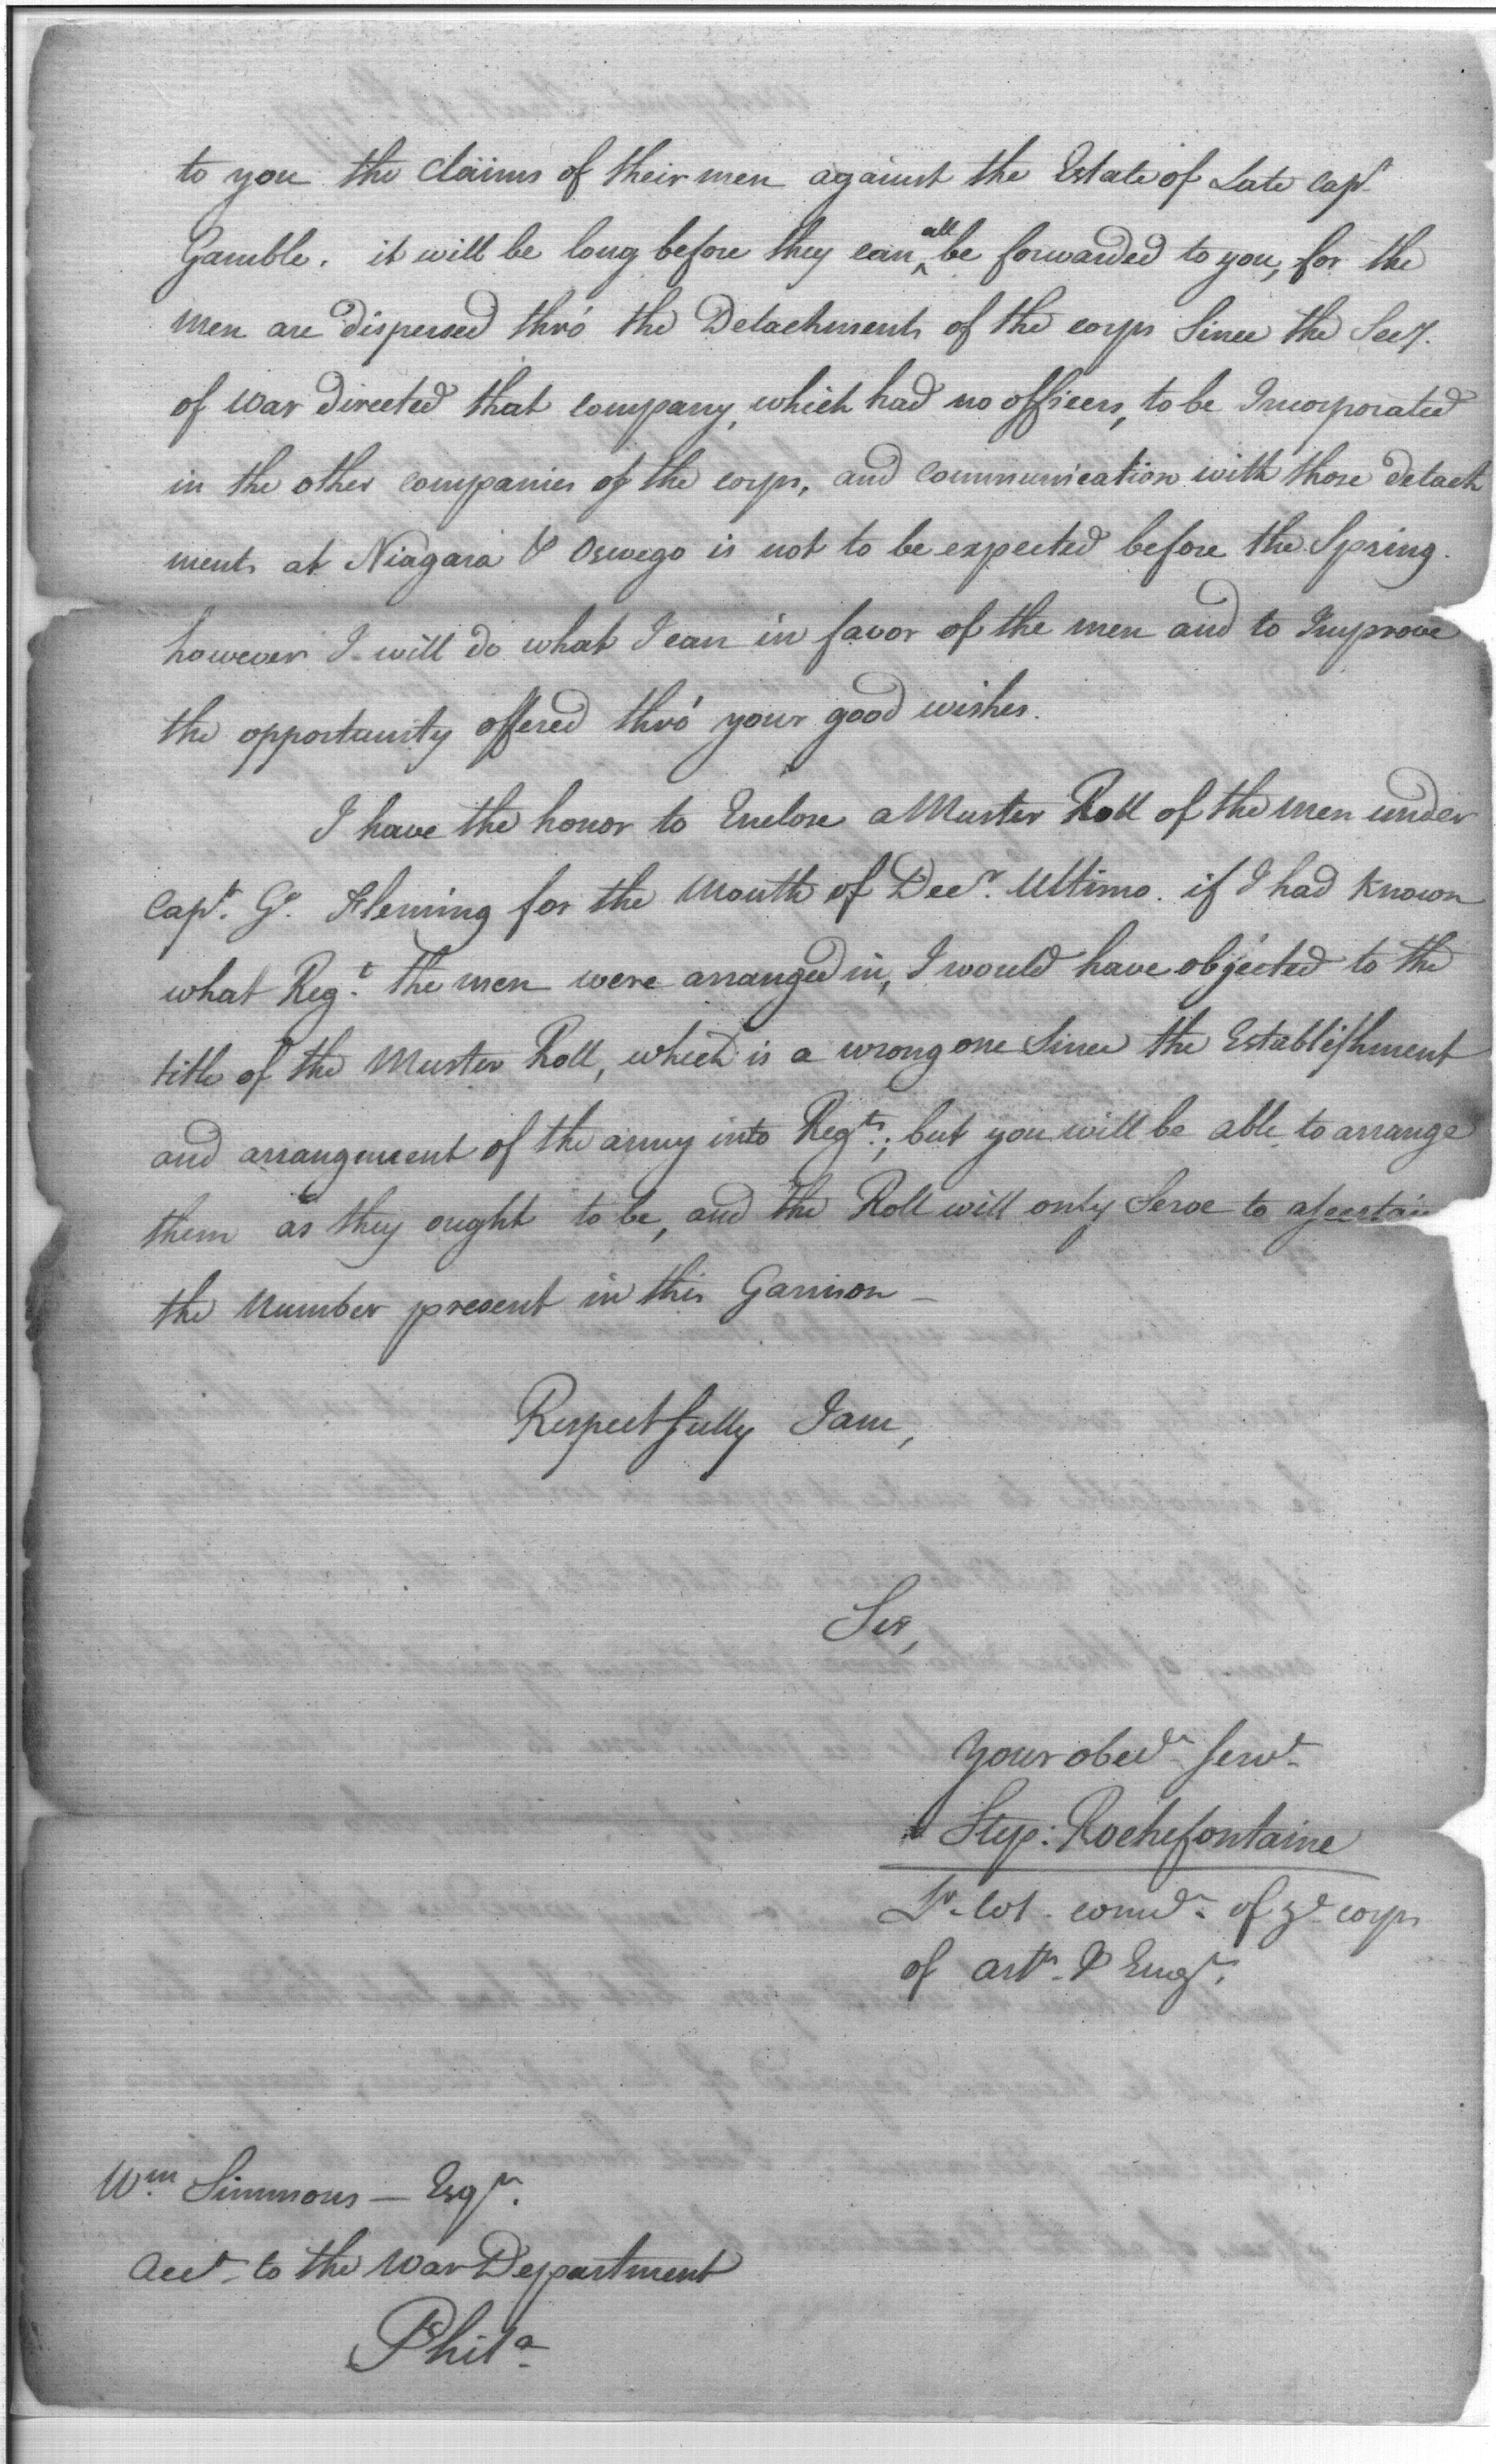 to you the claims of their men against the Estate of Late Capt
Gamble. it will be long before they can all be forwarded to you, for the
men are dispersed thro' the Detachments of the corps Since the Secy.
of War Directed that company, which had no officers, to be Incorporated
in the other companies of the corps, and communication with those detach
ments at Niagara & Oswego is not to be expected before the Spring.
however I will do what I can in favor of the men and to Improve
the opportunity offered thro' your good wishes.
I have the honor to Enclose a Muster Roll of the men under
Capt. Ge. Fleming for the Month of Decr. Ultimo. if I had known
what Regt. the men were arranged in, I would have objected to the
title of the Muster Roll, which is a wrong one Since the Establishment
and arrangement of the army into Regts.; but you will be able to arrange
them as they ought to be, and the Roll will only Serve to ascertain
the Number present in this Garrison —
Respectfully I am,
Sir,
Your obedt Servt
Step: Rochefontaine
Lt. Col. comdt. of ye corps
of arts. & Engrs.
Wm. Simmons — Esqr.
Acct. to the War Department
Phila